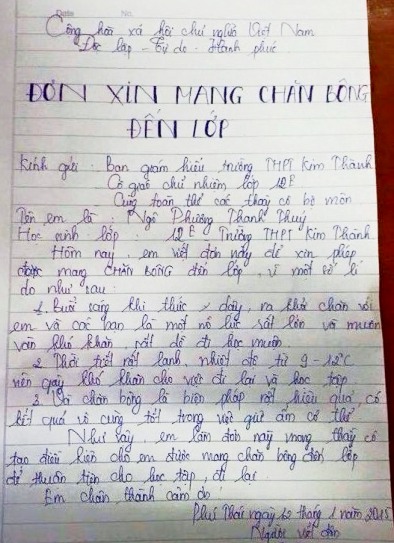 Date No.
Cộng hòa xã hội chủ nghĩa Việt Nam
Độc lập - Tự do - Hạnh phúc
ĐƠN XIN MANG CHĂN BÔNG
ĐẾN LỚP
Kính gửi: Ban giám hiệu trường THPT Kim Thành
Cô giáo chủ nhiệm lớp 12E
Cùng toàn thể các thầy cô bộ môn
Tên em là: Ngô Phương Thanh Thuý
Học sinh lớp: 12E Trường THPT Kim Thành
Hôm nay, em viết đơn này để xin phép
được mang CHĂN BÔNG đến lớp, vì một số lí
do như sau:
1. Buổi sáng khi thức dậy, ra khỏi chăn với
em và các bạn là một nỗ lực rất lớn và muôn
vàn khó khăn, rất dễ đi học muộn
2. Thời tiết rất lạnh, nhiệt độ từ 9-12°C
nên gây khó khăn cho việc đi lại và học tập
3. Vì chăn bông là biện pháp rất hiệu quả, có
kết quả vô cùng tốt trong việc giữ ấm cơ thể
Như vậy, em làm đơn này mong thầy cô
tạo điều kiện cho em được mang chăn bông đến lớp
để thuận tiện cho học tập, đi lại.
Em chân thành cảm ơn!
Phú Thái ngày 12 tháng 1 năm 2015
Người viết đơn